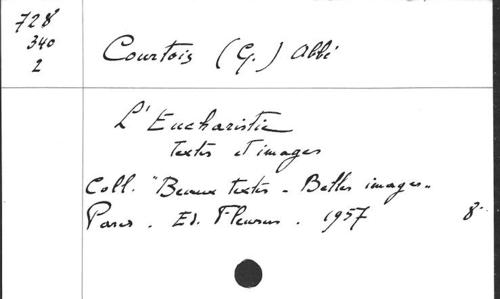 728
340
2
Courtois (G.) Abbé
L'Eucharistie
textes et images
Coll. "Beaux textes - Belles images"
Paris. Ed. Fleurus. 1957 8°